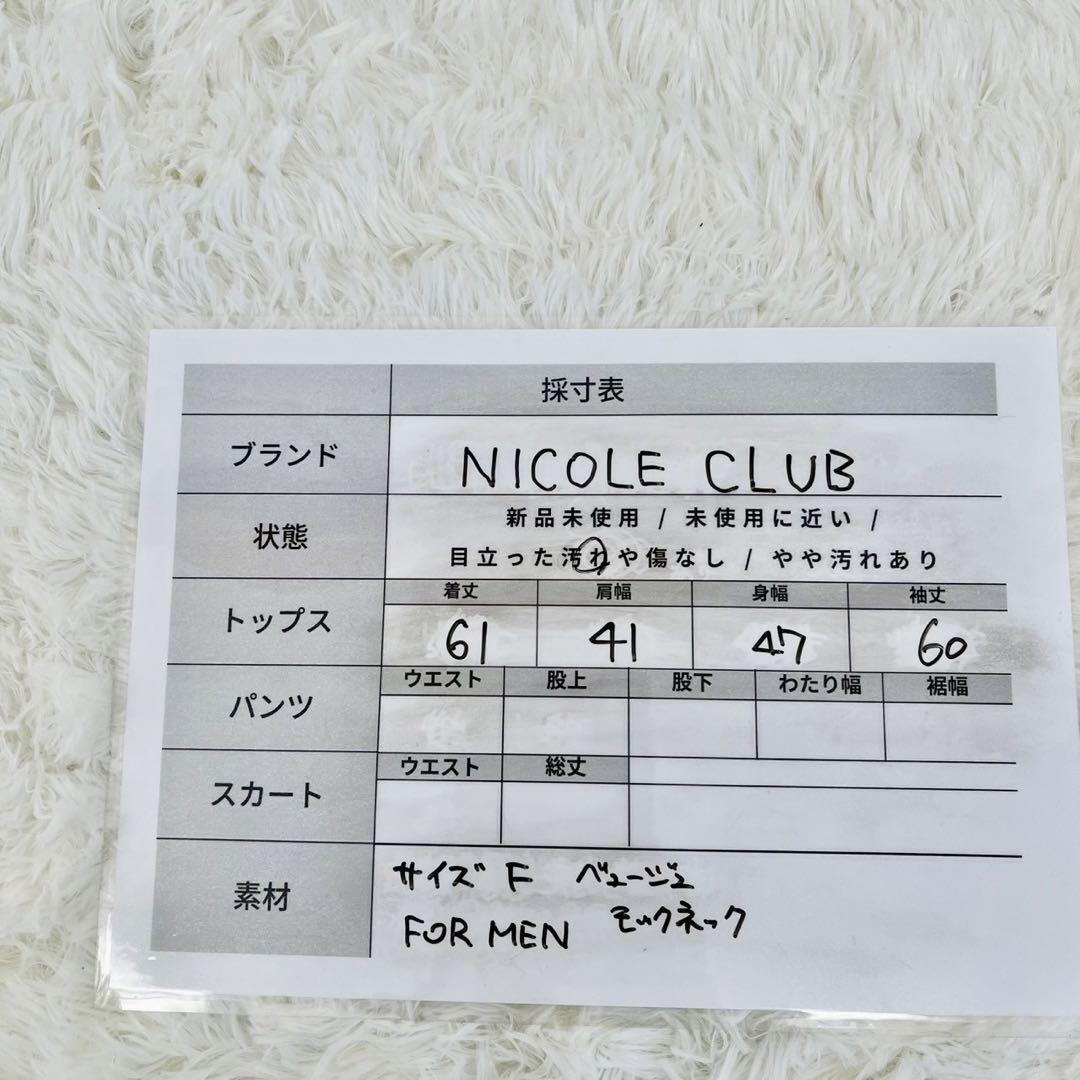 採寸表
ブランド
NICOLE CLUB
状態
新品未使用 / 未使用に近い /
目立った汚れや傷なし / やや汚れあり
トップス
着丈 肩幅 身幅 袖丈
61 41 47 60
パンツ
ウエスト 股上 股下 わたり幅 裾幅
スカート
ウエスト 総丈
素材
サイズ F ベージュ
FOR MEN モックネック